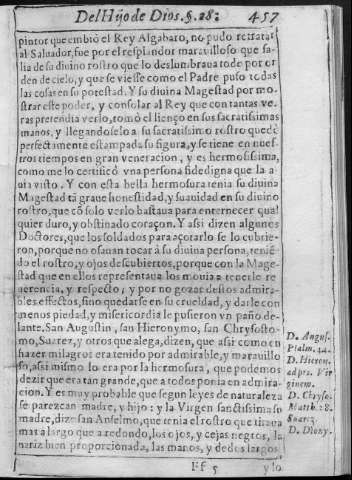 Del Hijo de Dios. §. 28. 457
pintor que embiò el Rey Algabaro, no pudo retratar
al Saluador, fue por el resplandor marauilloso que sa-
lia de su diuino rostro que lo deslumbraua todo por or
den de cielo, y que se viesse como el Padre puso todas
las cosas en su potestad. Y su diuina Magestad por mo-
strar este poder, y consolar al Rey que con tantas ve-
ras pretendia verlo, tomò el lienço en sus sacratissimas
manos, y llegandoselo a su sacratissimo rostro quedò
perfectamente estampada su figura, y se tiene en nues-
tros tiempos en gran veneracion, y es hermosissima,
como me lo certificò vna persona fidedigna que la a-
uia visto. Y con esta bella hermosura tenia su diuina
Magestad tã graue honestidad, y suauidad en su diuino
rostro, que cõ solo verlo bastaua para enternecer qual
quier duro, y obstinado coraçon. Y assi dizen algunos
Doctores, que los soldados para açotarlo se lo cubrie-
ron, porque no osauan tocar à su diuina persona, tenié
do el rostro, y ojos descubiertos, porque con la Mage-
stad que en ellos representaua los mouia a tenerle re
uerencia, y respecto, y por no gozar destos admira-
bles effectos, sino quedarse en su crueldad, y darle con
menos piedad, y misericordia le pusieron vn paño de-
lante. San Augustin, san Hieronymo, san Chrysosto-
mo, Suarez, y otros que alega, dizen, que assi como en
hazer milagros era tenido por admirable, y marauillo
so, assi mismo lo era por la hermosura, que podemos
dezir que era tan grande, que a todos ponia en admira-
cion. Y es muy probable que segun leyes de naturaleza
se parezcan madre, y hijo: y la Virgen sanctissima su
madre, dize san Anselmo, que tenia el rostro que tiraua
mas a largo que a redondo, los ojos, y cejas negros, la
nariz bien proporcionada, las manos, y dedos largos
Ff 5 y lo
D. Augus.
Psalm. 44.
D. Hieron.
ad pri. Vir
ginem.
D. Chryso.
Matth. 28.
Suarez
D. Diony.